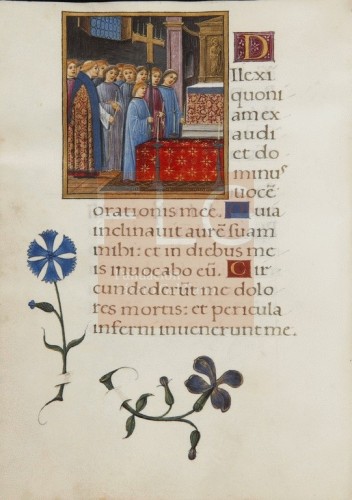 D
ilexi
quoni
am ex
audi
et do
minus
uocē
orationis mee. Quia
inclinauit aurē suam
mihi: et in diebus me
is inuocabo eū. Cir
cundederūt me dolo
res mortis: et pericula
inferni inuenerunt me.